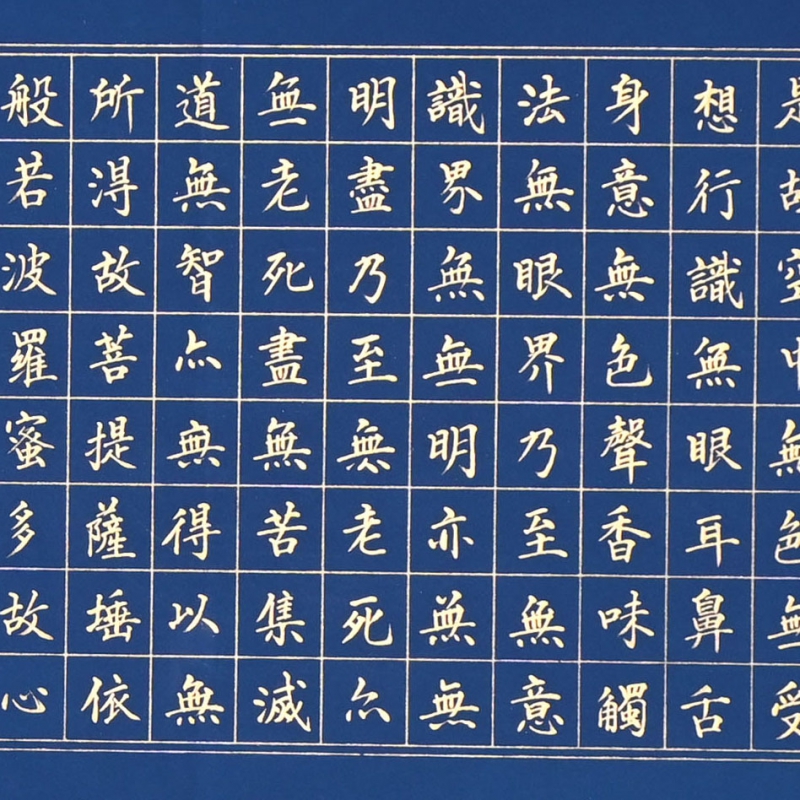 是故空中無色無受
想行識無眼耳鼻舌
身意無色聲香味觸
法無眼界乃至無意
識界無無明亦無無
明盡乃至無老死亦
無老死盡無苦集滅
道無智亦無得以無
所淂故菩提薩埵依
般若波羅蜜多故心